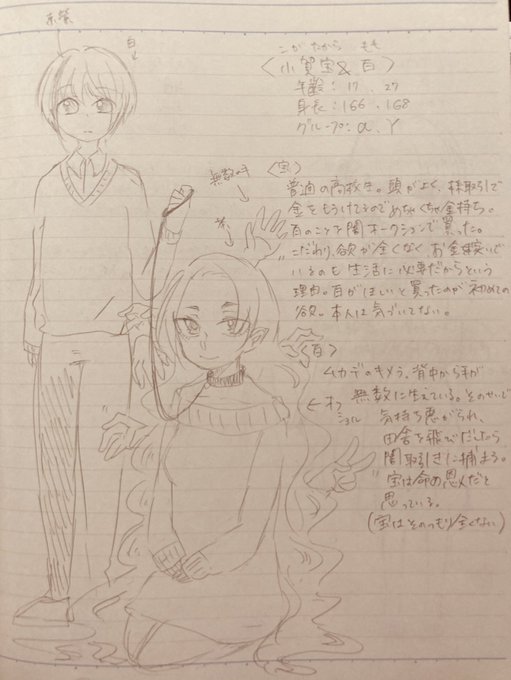 赤紫
白
こが たから もも
〈小賀宝&百〉
年齢:17、27
身長:166、168
グループ:α、γ
無数の手
〈宝〉
普通の高校生。頭がよく、株取引で
金をもうけてるのでめちゃくちゃ金持ち。
百のことを闇オークションで買った。
こだわり、欲が全くなく、お金稼いで
いるのも生活に必要だからという
理由。百がほしいと買ったのが初めての
欲。本人は気づいてない。
〈百〉
ムカデのキメラ。背中から手が
無数に生えている。そのせいで
気持ち悪がられ、
田舎を飛びだしたら
闇取引きに捕まる。
宝は命の恩人だと
思っている。
(宝はそのつもり全くない)